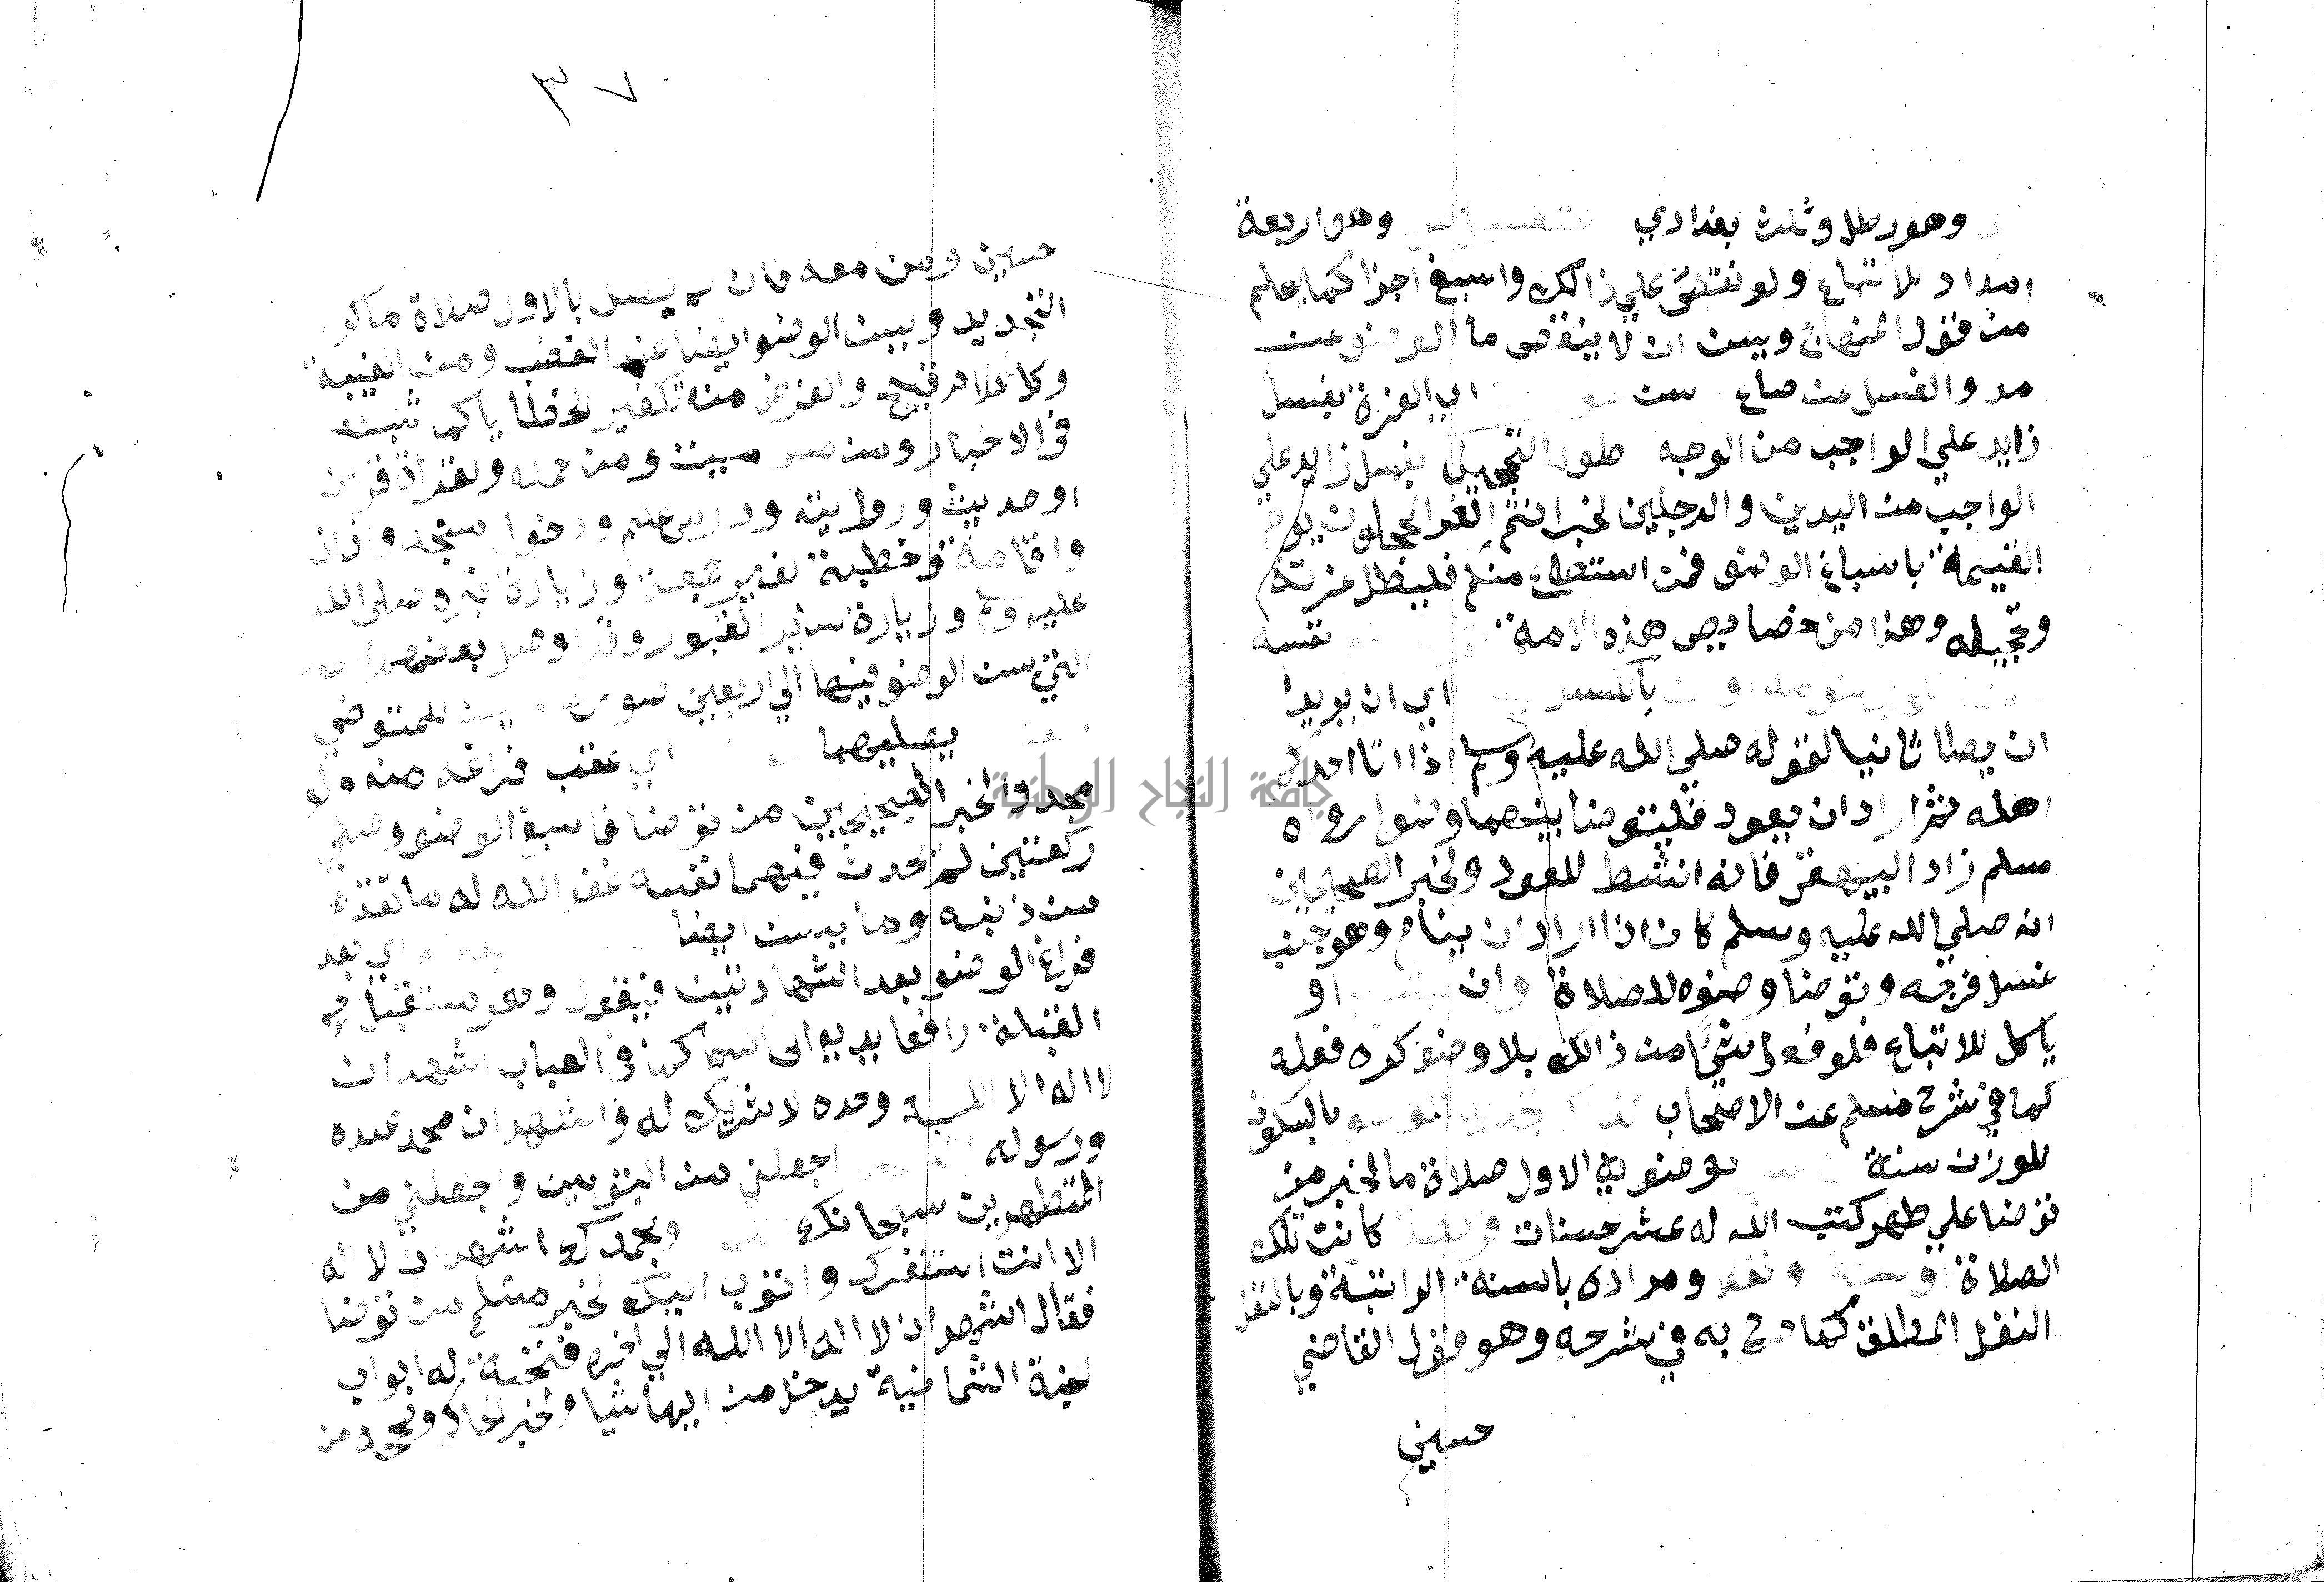 وهو رطل وثلث بغدادي وهو اربعة
امداد للاتباع ولو نقص علي ذالك واسبغ اجزا كما يعلم
من قول المنهاج ويسن ان لا ينقص ما الوضو عن
مد والغسل عن صاع سن اي الغرة بغسل
زايد علي الواجب من الوجه طول التحجيل بغسل زايد علي
الواجب من اليدين والرجلين لخبر انتم الغر المحجلون يوم
القيمة باسباغ الوضو فمن استطاع منكم فليطل غرته
وتحجيله وهذا من خصايص هذه الامة نفسه
اي ان يريد
ان يطا ثانيا لقوله صلي الله عليه وسلم اذا اتا احدكم
اهله ثم اراد ان يعود فليتوضا بينهما وضوا رواه
مسلم زاد البيهقي فانه انشط للعود ولخبر الصحيحين
انه صلي الله عليه وسلم كان اذا اراد ان ينام وهو جنب
غسل فرجه وتوضا وضوه للصلاة وان او
ياكل للاتباع فلو فعل شيًا من ذالك بلا وضو كره فعله
كما في شرح مسلم عن الاصحاب بالسكون
للوزن سنة توضو الاول صلاة ما لخبر من
توضا علي طهر كتب الله له عشر حسنات كانت تلك
الصلاة او ومراده بالسنة الراتبة وبالنفل
النفل المطلق كما صرح به في شرحه وهو قول القاضي
حسين
٣٧
حسين ومن معه فان لم يصل بالاول صلاة ما كره
التجديد ويسن الوضو ايضا عند الغضب ومن الغيبة
وكل كلام قبيح والغرض منه تكفير الخطايا كما ثبت
في الاخبار ومن مس ميت ومن حمله ولقراة قران
او حديث وروايته ودرس علم ودخول مسجد واذان
واقامة وخطبة لغير جمعة وزيارة قبره صلي الله
عليه وسلم وزيارة ساير القبور وقد اوصل بعضهم
التي يسن الوضو فيها الي اربعين للمتوضي
يصليهما اي عقب فراغه منه ولو
مجدد الخبر الصحيحين من توضا فاسبغ الوضو وصلي
ركعتين لم يحدث فيهما نفسه غفر الله له ما تقدم
من ذنبه وما يسن ايضا اي بعد
فراغ الوضو بعد الشهادتين فيقول وهو مستقبل
القبلة رافعا يديه الي السما كما في العباب اشهد ان
لا اله الا الله وحده لا شريك له واشهد ان محمد عبده
ورسوله اجعلني من التوبين واجعلني من
المتطهرين سبحانك وبحمدك اشهد ان لا اله
الا انت استغفرك واتوب اليك لخبر مسلم من توضا
فقال اشهد ان لا اله الا الله الي اخره فتحت له ابواب
الجنة الثمانية يدخل من ايها شا ولخبر الحاكم وصححه من
جامعة النجاح الوطنية